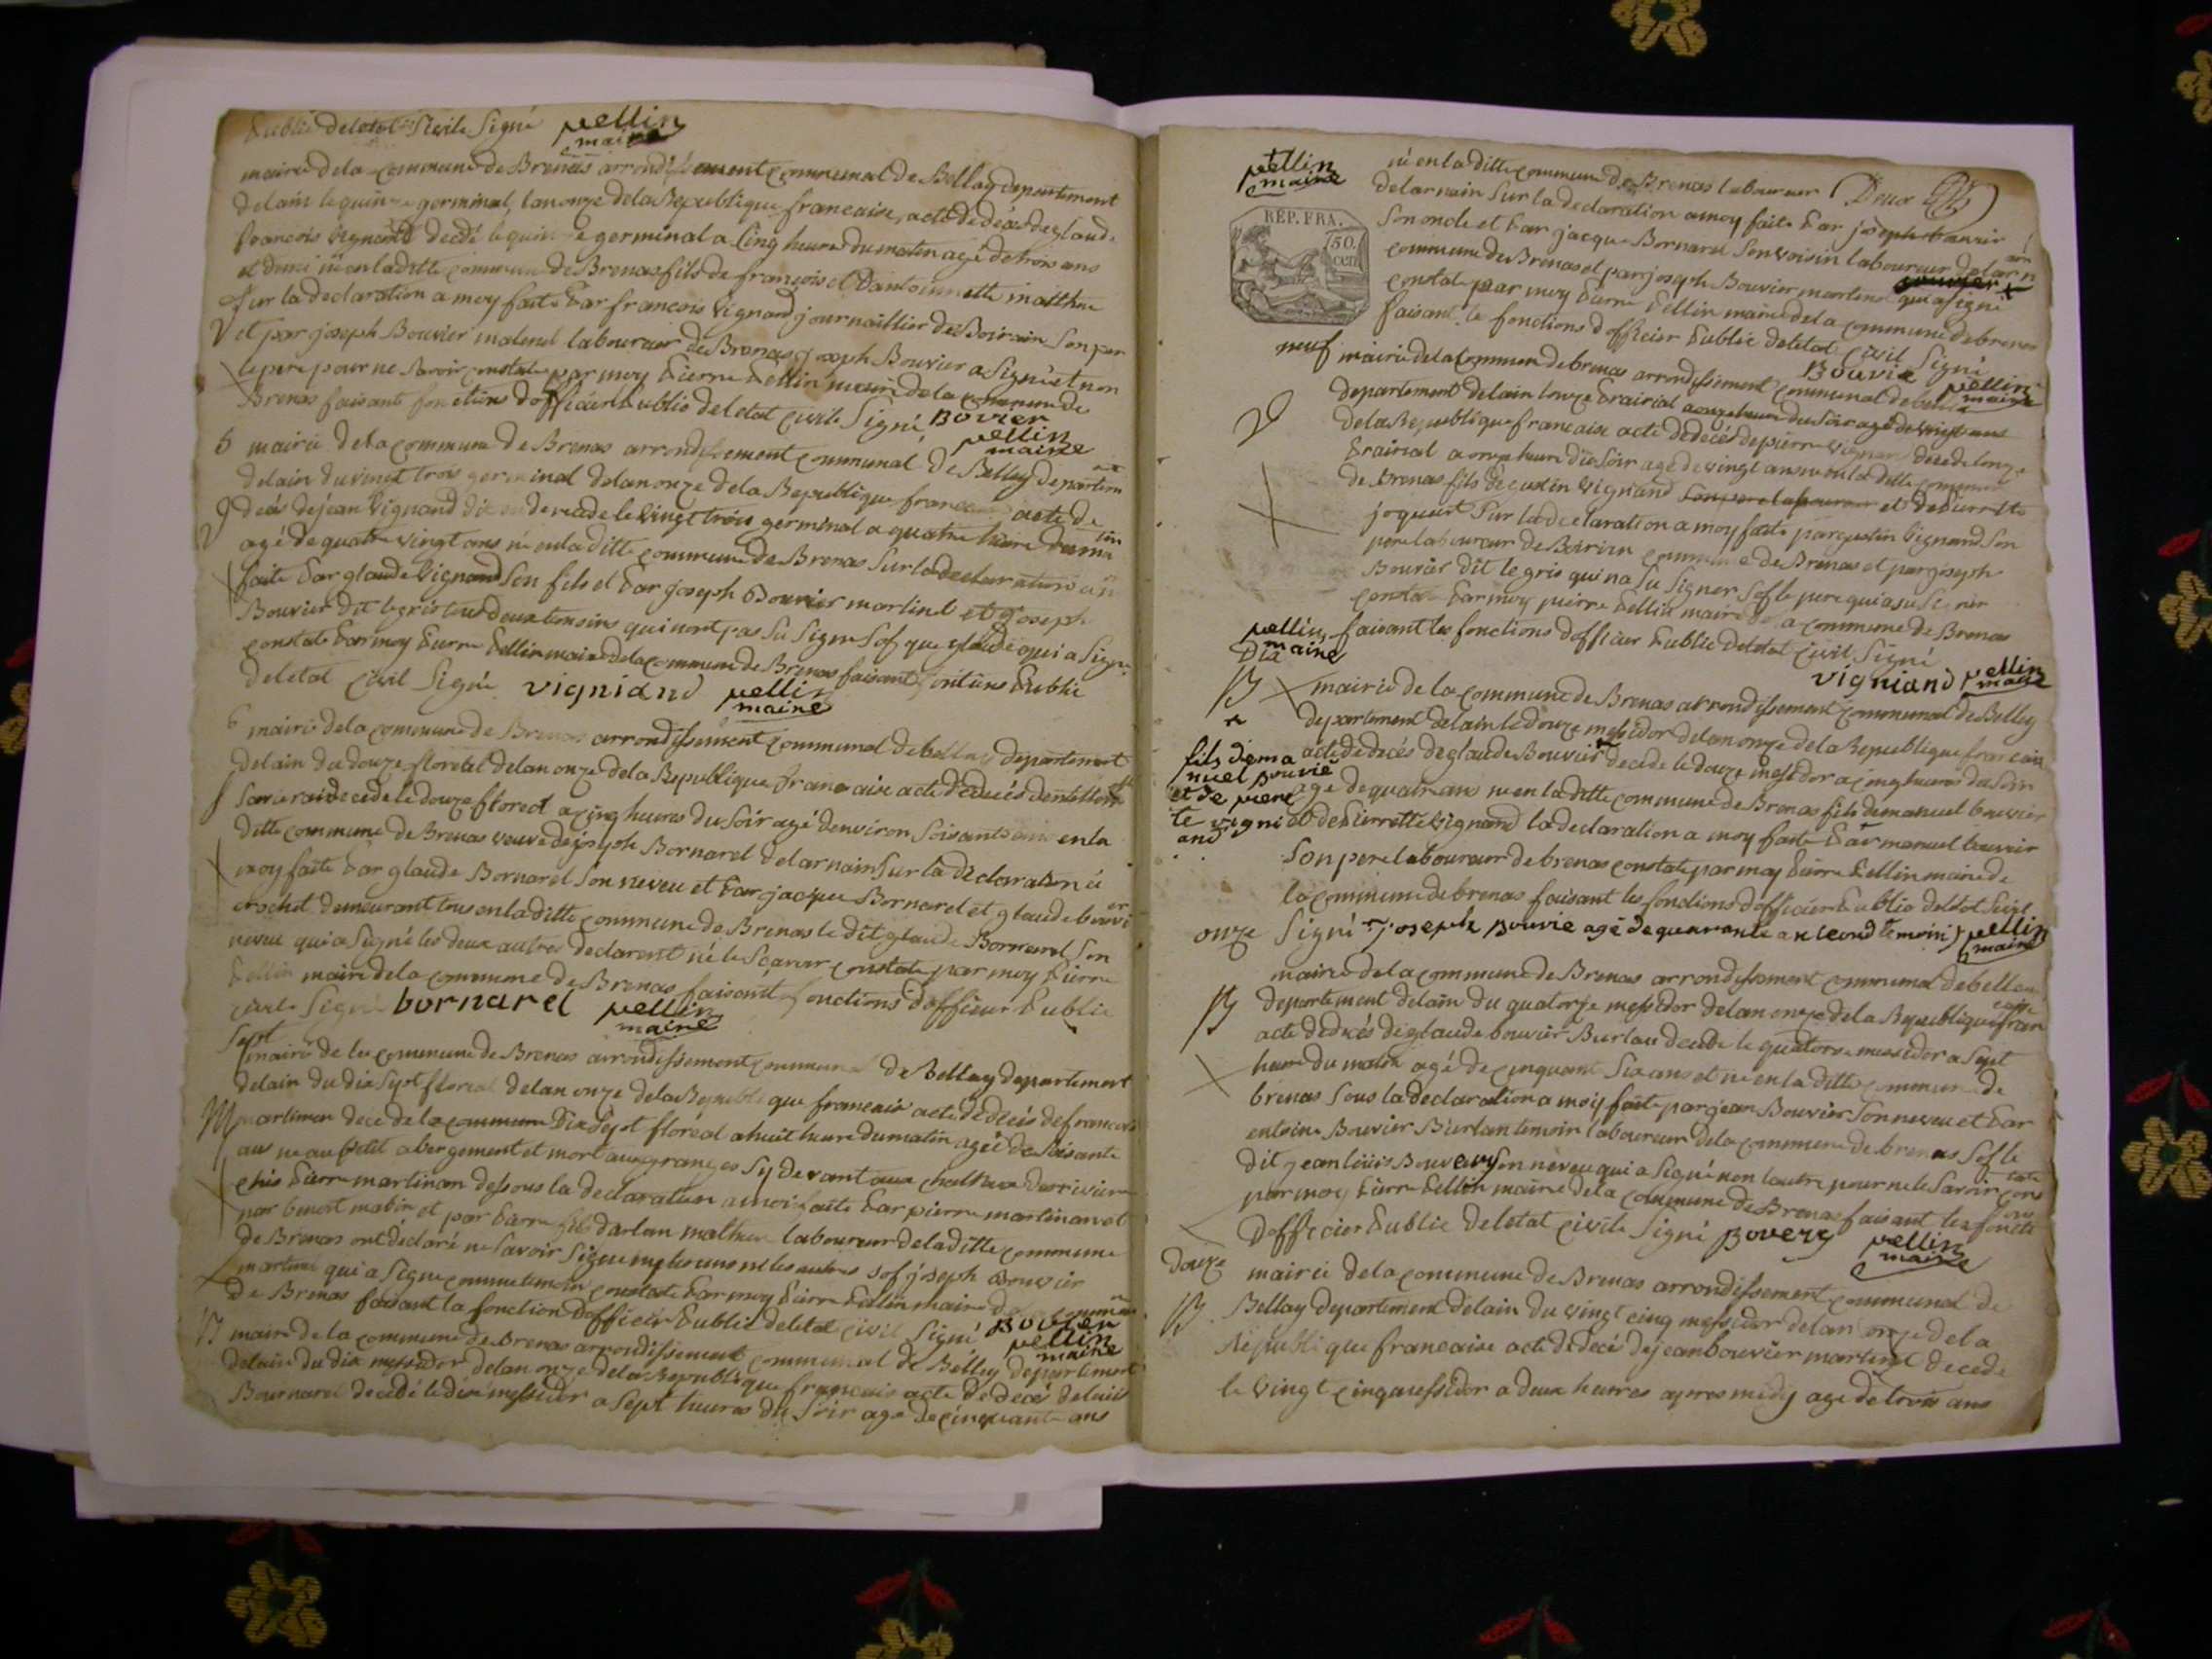 Public deletat Sivile Signé pellin
maire
mairie dela commune de Brenas arrondissement communal de Bellay departement
delain le quinze germinal, lan onze dela Republique francaise, acte de decés de glaude
francois Vignand decedé le quinze germinal a Cinq heures du matin agé de trois ans
et demi né en laditte commune de Brenas fils de francois et Dantoinnette matthne
Sur la declaration a moy faite Par francois Vignand journaillier de Boirain Son per
V et par joseph Bouvier malend laboureur de Brenas joseph Bouvier a Signé et non
le pere pour ne Savoir constate par moy Pierre Pellin maire dela commune de
Brenas faisante fonctions dofficier Public deletat civile Signé, Bovier
pellin
maire
5 mairie dela commune de Brenas arrondissement communal de Belley departem
ent
delain du vingt trois germinal delan onze dela Republique francaise acte de
V decés de jean Vignand decede le Vingt trois germinal a quatre heure duma
tin
agé de quatre vingt ans né enladitte commune de Brenas Sur la declaration a m
faite Par glaude Vignand Son fils et Par joseph Bouvier martind et joseph
Bouvier dit legris tous deux temoins qui nont pas Su Signer Sof que glaude qui a Signe
constate Par moy Pierre Pellin maire dela commune de Brenas faisant fontions Public
deletat Civil Signé vigniand pellin
maire
6 mairie dela commune de Brenas arrondissement communal debellay departement
delain du douze florеal delan onze dela Republique francaise acte dedecés
decede le douze floreal a cinq heures du Soir agé denviron Soisante enla
ditte commune de Brenas veuve de joseph Bornarel delarnain Sur la declaration a
moy faite Par glaude Bornarel Son neveu et Par jacque Bornarel et glaude bouvi
er
crochet demeurant tous enladitte commune de Brenas le dit glaude Bornarel Son
neveu qui a Signé les deux autres declarent né le Scavoir constate par moy Pierre
Pellin maire dela commune de Brenas faisant fonctions dofficier Public
civile Signé bornarel pellin
maire
Sept
mairie de la commune de Brenas arrondissement communal de Bellay departement
delain du dix Sept floreal delan onze dela Republique francaise acte dedecés defrancois
M martinan decede la commune Dix Sept floréal a huit heure dumatin agé de Soisante
ans ne au petit abergement et mort aux granges Sy devant aux
chis Pierre martinan dessous la declaration a moi faite Par pierre martinan et
par benoit matin et par Pierre fils mathieu laboureur deladitte commune
de Brenas ont déclaré ne Savoir Signe ny les uns ni les autres Sof joseph Bouvier
martine qui a Signe comme temoin constate Par moy Pierre Pellin maire de la commune
de Brenas faisant la fonction dofficier Public deletat civil Signé Bouvier
pellin
maire
B mairie dela commune de Brenas arrondissement communal de Belley departement
delain du dix messidor delan onze dela Republique francais acte de decé delouis
Bournarel decedé le dix messidor a Sept heures du Soir age de cinquante ans
pellin
maire
né en la ditte commune de Brenas laboureur Deux
delarnain Sur la declaration a moy faite Par joseph bouvir
REP. FRA.
50.
cen
Son oncle et Par jacque Bornarel Son voisin laboureur delarn
ain
commune de Brenas et par joseph Bouvier martine qui a Signé
constate par moy Pierre Pellin maire dela commune debrenas
faisant le fonctions dofficier Public deletat Civil Signé
Bouvie pellin
maire
neuf mairie dela Commun debrenas arrondissement communal debelle
departement delain lonze Prairial a onze heure du Soir agé de vingt ans
V dela Republique francaise acte dedecés depierre Vignan decede lonze
Prairial a onze heure du Soir agé de vingt ans ne en la ditte commune
de Brenas fils de gustin Vignand Son pere laboureur et de Pierrette
joquent Sur la declaration a moy faite par gustin Vignand Son
pere laboureur de Boirien commune de Brenas et par joseph
Bouvier dit le gris qui na Su Signer Sof le pere qui a Su Signer
constate Par moy pierre Pellin maire de la commune de Brenas
pellin faisant les fonctions dofficier Public deletat Civil Signé
maire
vigniand pellin
maire
Dix
B mairie de la commune de Brenas arrondissement communal de Belley
departement delain le douze messidor delan onze de la Republique francais
acte de decés de glaude Bouvier decede le douze messidor a cinq heures du Soir
fils dema
nuel bouvie
et de piere
te vigni
and
agé de quatre ans né en la ditte commune de Brenas fils demanuel bouvier
et de Pierrette Vignand la declaration a moy faite Par manuel bouvier
Son pere laboureur de brenas constate par moy Pierre Pellin maire de
la commune de brenas faisant les fonctions dofficier Public deletat Sivil
onze Signé joseph Bouvie agé de quarante an second temoin pellin
maire
mairie dela commune de Brenas arrondissement communal debellay
B departement delain du quatorze messidor delan onze dela Republique fran
caise
acte dedecés de glaude bouvier Burlan decede le quatorze messidor a Sept
heure du matin agé de cinquante Six ans et ne en la ditte commune de
brenas Sous la declaration a moy faite par jean Bouvier Son neveu et Par
entoine Bouvier Burlan temoin laboureur dela commune de brenas Sof le
dit jean louis Bouvery Son neveu qui a Signé non lautre pour ne le Savoir cons
tate
par moy Pierre Pellin maire de la commune de Brenas faisant les foncti
ons
dofficier Public deletat civile Signé Bovery pellin
maire
Douze mairie dela commune de Brenas arrondissement communal de
B. Bellay departement delain du vingt cinq messidor delan onze dela
Republique francaise acte de decé de jean bouvier martine decede
le Vingt cinq messidor a deux heures apres midy agé de trois ans